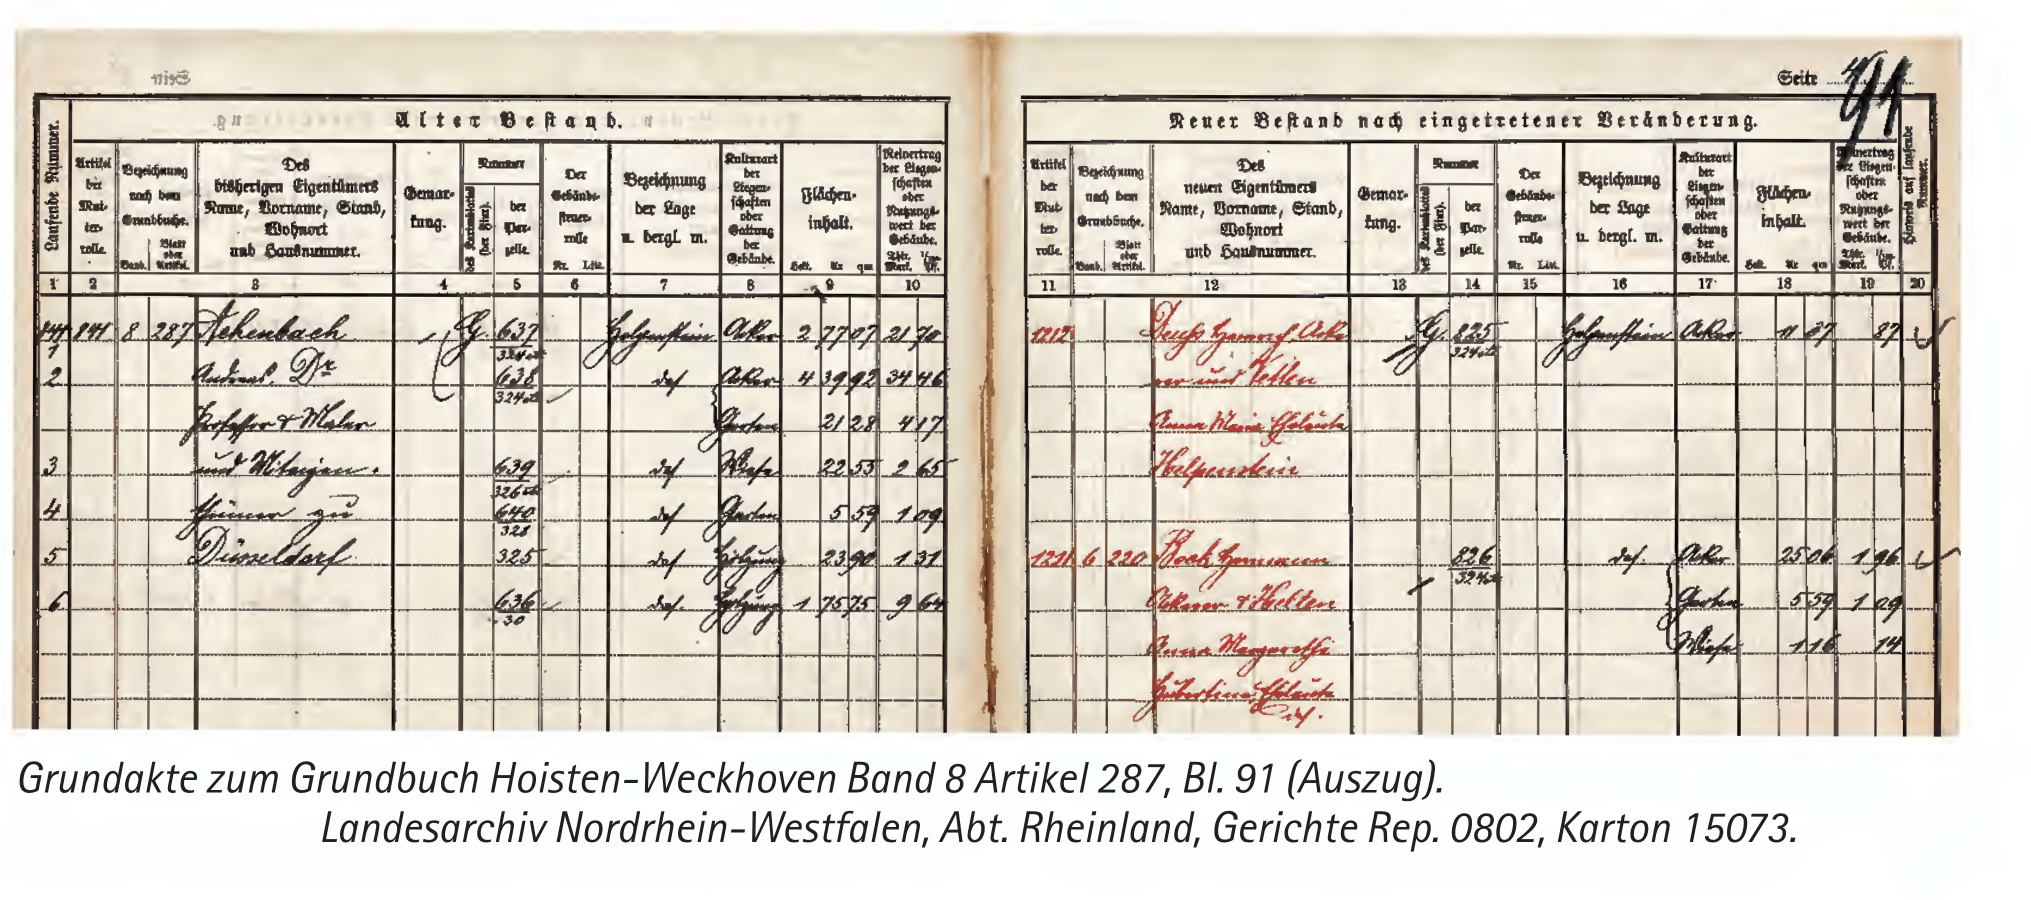 Seite
Alter Bestand.
Laufende Nummer.
Artikel der Mutterrolle.
Bezeichnung nach dem Grundbuche.
Band. Blatt oder Artikel.
Des
bisherigen Eigentümers
Name, Vorname, Stand,
Wohnort
und Hausnummer.
Gemar-
kung.
Nummer
des Kartenblattes (der Flur).
der Par-
zelle.
Der
Gebäude-
steuer-
rolle
Nr. Litt.
Bezeichnung
der Lage
u. dergl. m.
Kulturart
der
Liegen-
schaften
oder
Gattung
der
Gebäude.
Flächen-
inhalt.
Hekt. Ar qm
Reinertrag
der Liegen-
schaften
oder
Nutzungs-
wert der
Gebäude.
1 2 3 4 5 6 7 8 9 10
141 8 287 Achenbach G. 637 Helpenstein Acker 2 77 07 21 70
1 324 etc
2 Andreas, Dr 638 das Acker 4 39 92 34 46
324 etc
Professor & Maler Garten 21 28 4 17
3 und Miteigen- 639 das Wiese 22 55 2 65
326 etc
4 thümer zu 640 das Garten 5 59 1 09
328
5 Düsseldorf 325 das Holzung 23 90 1 31
6 636 das. Holzung 1 75 75 9 64
30
Seite 91
Neuer Bestand nach eingetretener Veränderung.
Artikel
der
Mut-
ter-
rolle.
Bezeichnung
nach dem
Grundbuche.
Band. Blatt oder Artikel.
Des
neuen Eigentümers
Name, Vorname, Stand,
Wohnort
und Hausnummer.
Gemar-
kung.
Nummer
des Kartenblattes (der Flur).
der
Par-
zelle.
Der
Gebäude-
steuer-
rolle
Nr. Litt.
Bezeichnung
der Lage
u. dergl. m.
Kulturart
der
Liegen-
schaften
oder
Gattung
der
Gebäude.
Flächen-
inhalt.
Hekt. Ar qm
Reinertrag
der Liegen-
schaften
oder
Nutzungs-
wert der
Gebäude.
Hinweis auf laufende Nummer.
11 12 13 14 15 16 17 18 19 20
1212 Heinrich, Acke G. 825 Helpenstein Acker 11 67 87
324 etc
rer und Vetten
Anna Maria Eheleute
Helpenstein
1211 6 220 Hermann 826 das. Acker 25 06 1 96
324 etc
Ackerer & Helten Garten 5 59 1 09
Anna Margaretha Wiese 1 16 14
Hubertina, Eheleute
das.
Grundakte zum Grundbuch Hoisten-Weckhoven Band 8 Artikel 287, Bl. 91 (Auszug).
Landesarchiv Nordrhein-Westfalen, Abt. Rheinland, Gerichte Rep. 0802, Karton 15073.